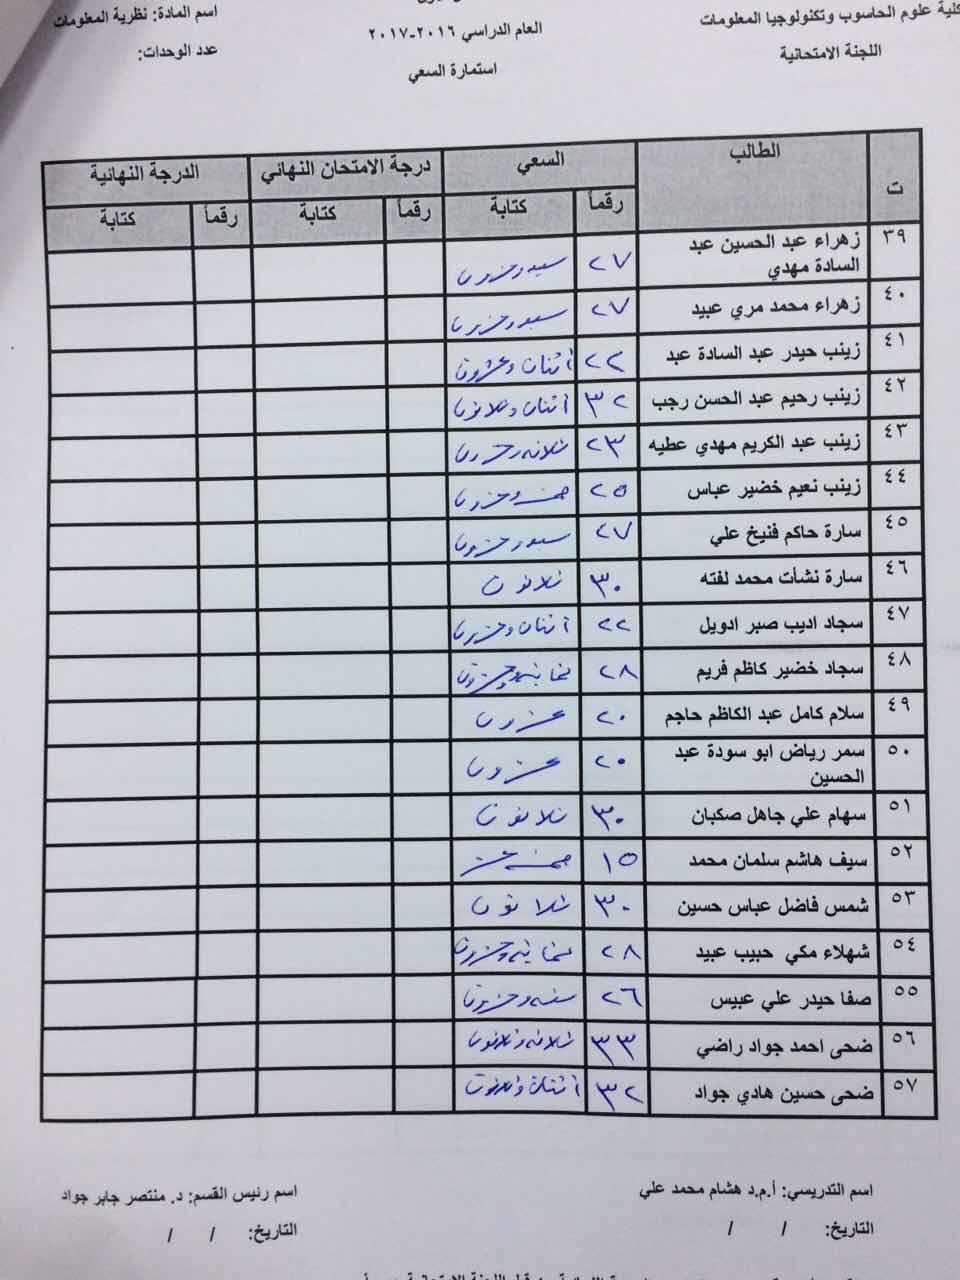 كلية علوم الحاسوب وتكنولوجيا المعلومات
اللجنة الامتحانية
العام الدراسي ٢٠١٦-٢٠١٧
استمارة السعي
اسم المادة: نظرية المعلومات
عدد الوحدات:
ت الطالب السعي درجة الامتحان النهائي الدرجة النهائية
رقماً كتابة رقماً كتابة رقماً كتابة
٣٩ زهراء عبد الحسين عبد ٢٧ سبعة وعشرون
السادة مهدي
٤٠ زهراء محمد مري عبيد ٢٧ سبعة وعشرون
٤١ زينب حيدر عبد السادة عبد ٢٢ اثنان وعشرون
٤٢ زينب رحيم عبد الحسن رجب ٣٢ اثنان وثلاثون
٤٣ زينب عبد الكريم مهدي عطيه ٢٣ ثلاثة وعشرون
٤٤ زينب نعيم خضير عباس ٢٥ خمسة وعشرون
٤٥ سارة حاكم فنيخ علي ٢٧ سبعة وعشرون
٤٦ سارة نشأت محمد لفته ٣٠ ثلاثون
٤٧ سجاد اديب صبر ادويل ٢٢ اثنان وعشرون
٤٨ سجاد خضير كاظم فريم ٢٨ ثمانية وعشرون
٤٩ سلام كامل عبد الكاظم حاجم ٢٠ عشرون
٥٠ سمر رياض ابو سودة عبد ٢٠ عشرون
الحسين
٥١ سهام علي جاهل صكبان ٣٠ ثلاثون
٥٢ سيف هاشم سلمان محمد ١٥ خمسة عشر
٥٣ شمس فاضل عباس حسين ٣٠ ثلاثون
٥٤ شهلاء مكي حبيب عبيد ٢٨ ثمانية وعشرون
٥٥ صفا حيدر علي عبيس ٢٦ ستة وعشرون
٥٦ ضحى احمد جواد راضي ٣٣ ثلاثة وثلاثون
٥٧ ضحى حسين هادي جواد ٣٢ اثنان وثلاثون
اسم التدريسي: أ.م.د هشام محمد علي
التاريخ: / /
اسم رئيس القسم: د. منتصر جابر جواد
التاريخ: / /